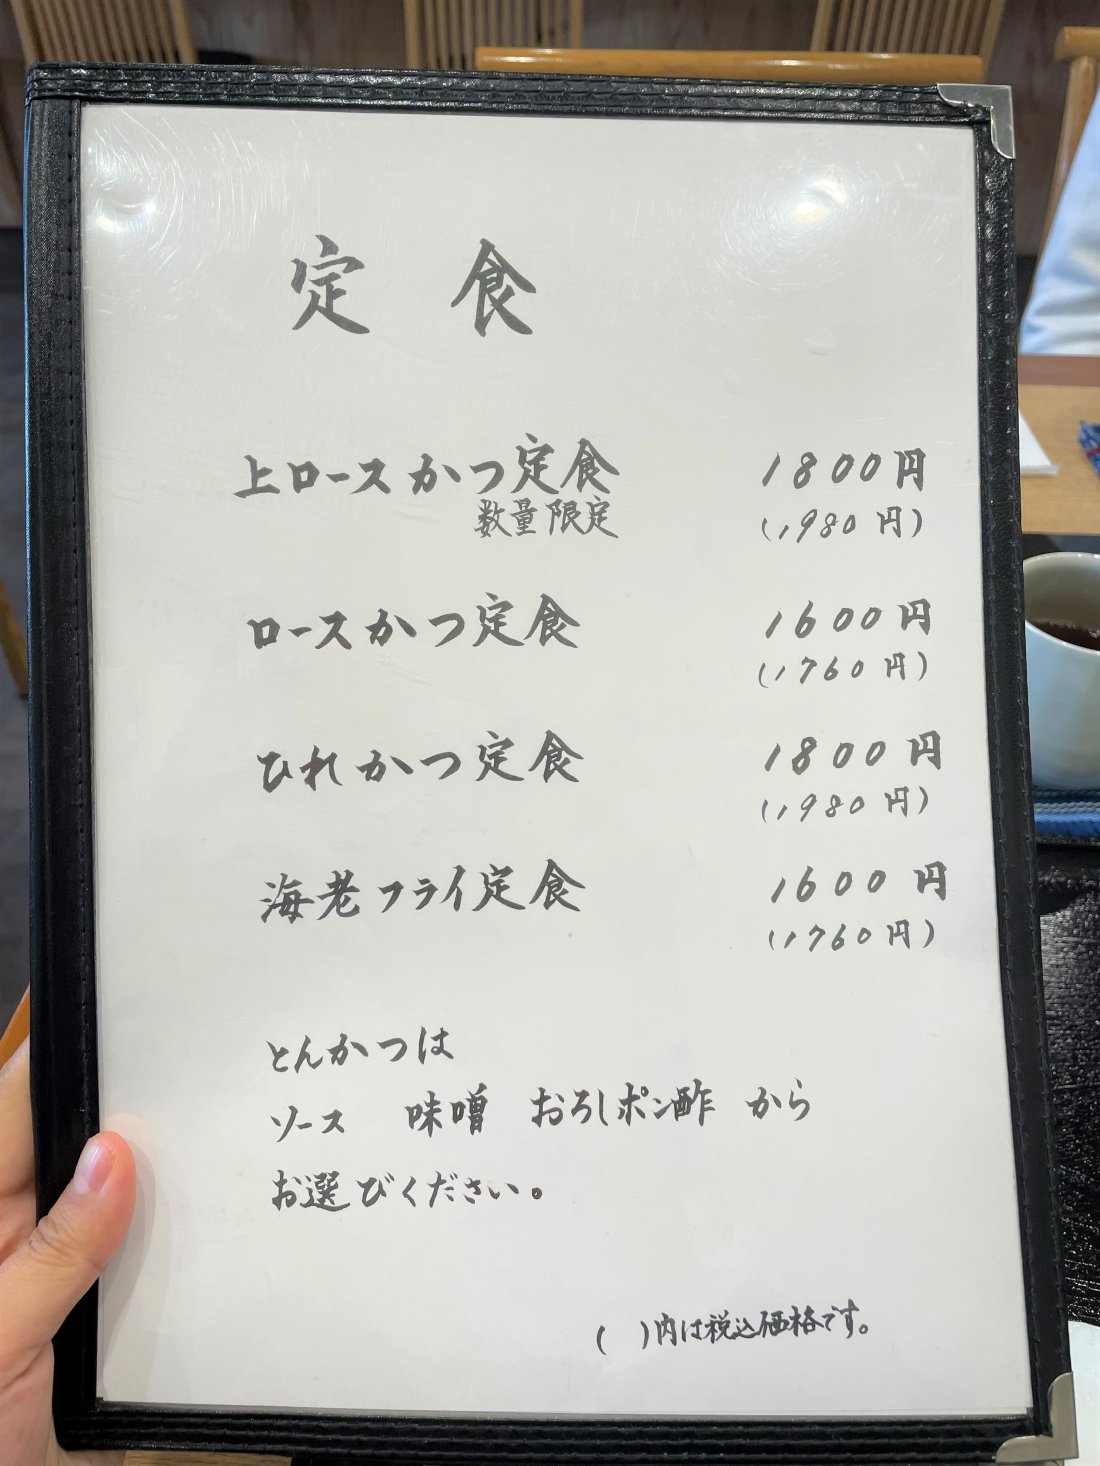 定食
上ロースかつ定食 1800円
数量限定 (1980円)
ロースかつ定食 1600円
(1760円)
ひれかつ定食 1800円
(1980円)
海老フライ定食 1600円
(1760円)
とんかつは
ソース 味噌 おろしポン酢 から
お選びください。
( )内は税込価格です。